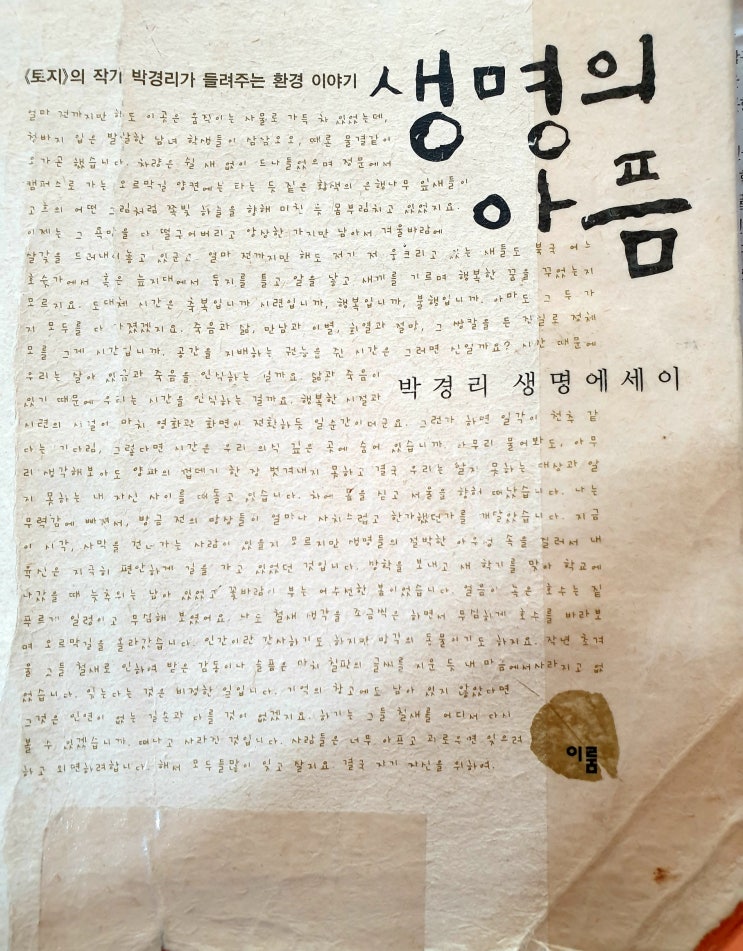 《토지》의 작가 박경리가 들려주는 환경 이야기
생명의
아픔
얼마 전까지만 해도 이곳은 움직이는 사물로 가득 차 있었는데,
청바지 입은 발랄한 남녀 학생들이 삼삼오오, 때론 물결같이
오가곤 했습니다. 차량은 쉴 새 없이 드나들었으며 정문에서
캠퍼스로 가는 오르막길 양켠에는 타는 듯 짙은 황색의 은행나무 잎새들이
고흐의 어떤 그림처럼 쪽빛 하늘을 향해 미친 듯 몸부림치고 있었지요.
이제는 그 욕망을 다 떨구어버리고 앙상한 가지만 남아서 겨울바람에
살갗을 드러내놓고 있군요. 얼마 전까지만 해도 저기 저 웅크리고 있는 새들도 북국 어느
호숫가에서 혹은 늪지대에서 둥지를 틀고 알을 낳고 새끼를 기르며 행복한 꿈을 꾸었는지
모르지요. 도대체 시간은 축복입니까 시련입니까, 행복입니까, 불행입니까. 아마도 그 두 가
지 모두를 다 가졌겠지요. 죽음과 삶, 만남과 이별, 희열과 절망, 그 쌍칼을 든 진실로 정체
모를 그게 시간입니까. 공간을 지배하는 권능을 쥔 시간은 그러면 신일까요? 시간 때문에
우리는 살아 있음과 죽음을 인식하는 걸까요. 삶과 죽음이
있기 때문에 우리는 시간을 인식하는 걸까요. 행복한 시절과
박경리 생명에세이
시련의 시절이 마치 영화관 화면이 전환하듯 일순간이더군요. 그런가 하면 일각이 천추 같
다는 기다림, 그렇다면 시간은 우리 의식 깊은 곳에 숨어 있습니까. 아무리 물어봐도, 아무
리 생각해보아도 양파의 껍데기 한 장 벗겨내지 못하고 결국 우리는 알지 못하는 대상과 알
지 못하는 내 자신 사이를 떠돌고 있습니다. 차에 몸을 싣고 서울을 향해 떠났습니다. 나는
무력감에 빠져서, 방금 전의 망상들이 얼마나 사치스럽고 한가했던가를 깨달았습니다. 지금
이 시각, 사막을 건너가는 사람이 있을지 모르지만 생명들의 절박한 아우성 속을 걸러서 내
육신은 지극히 편안하게 길을 가고 있었던 것입니다. 방학을 보내고 새 학기를 맞아 학교에
나갔을 때 늦추위는 남아 있었고 꽃바람이 부는 어수선한 봄이었습니다. 얼음이 녹은 호수는 짙
푸르게 일렁이고 무심해 보였어요. 나도 철새 생각을 조금씩은 하면서 무심하게 호수를 바라보
며 오르막길을 올라갔습니다. 인간이란 간사하기도 하지만 망각의 동물이기도 하지요. 작년 초겨
울 그들 철새로 인하여 받은 감동이나 슬픔은 마치 칠판의 글씨를 지운 듯 내 마음에서 사라지고 없
었습니다. 잊는다는 것은 비정한 일입니다. 기억의 창고에도 남아 있지 않았다면
그것은 인연이 없는 길손과 다를 것이 없겠지요. 하기는 그들 철새를 어디서 다시
볼 수 있겠습니까. 떠나고 사라진 것입니다. 사람들은 너무 아프고 괴로우면 잊으려
하고 외면하려합니다. 해서 모두들 많이 잊고 살지요. 결국 자기 자신을 위하여.
이룸